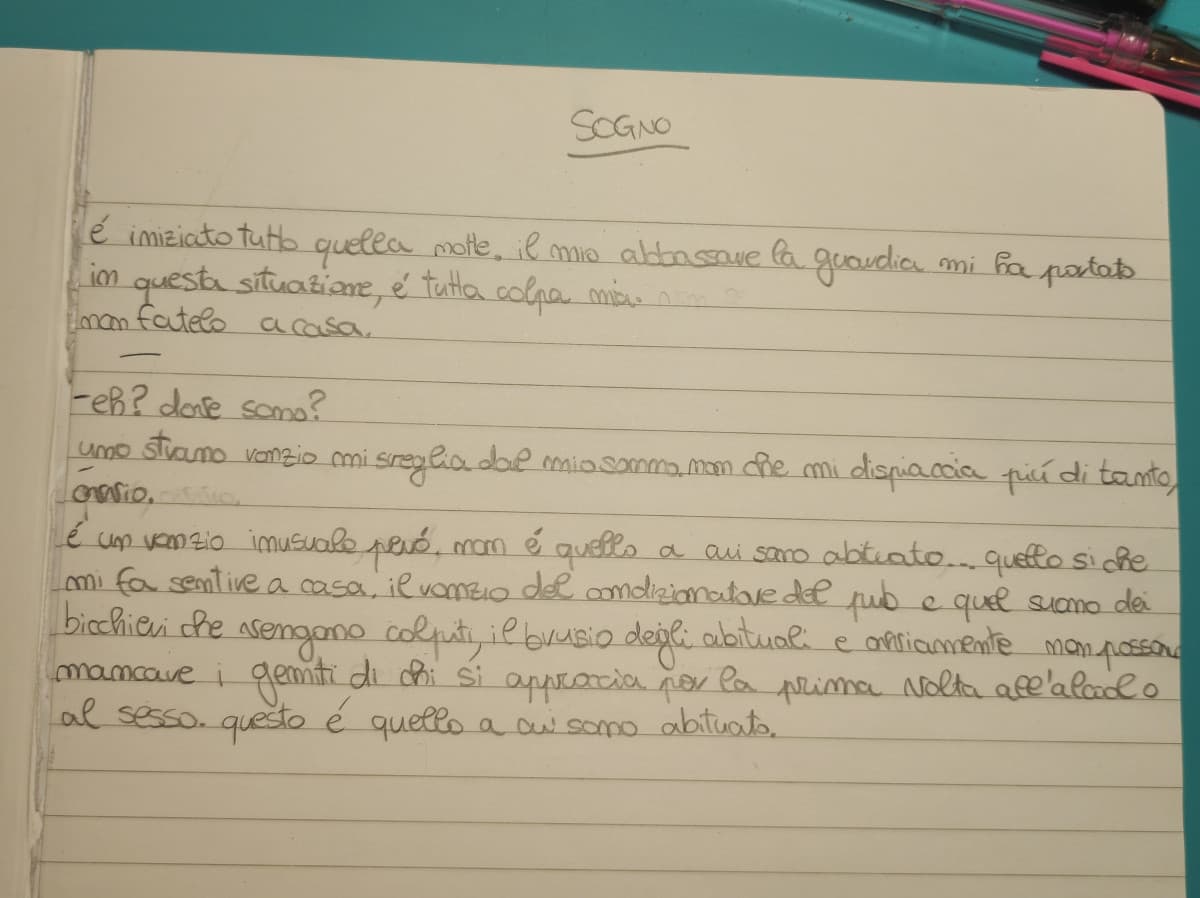 SOGNO
é iniziato tutto quella notte. il mio abbassare la guardia mi ha portato
in questa situazione, é tutta colpa mia.
non fatelo a casa.
—
-eh? dove sono?
uno strano ronzio mi sveglia dal mio sonno. non che mi dispiaccia piú di tanto,
ovvio.
é un ronzio inusuale peró, non é quello a cui sono abituato... quello si che
mi fa sentire a casa, il ronzio del condizionatore del pub e quel suono dei
bicchieri che vengono colputi, il brusio degli abituali e ovviamente non possono
mancare i gemiti di chi si approccia per la prima volta all'alcol o
al sesso. questo é quello a cui sono abituato.